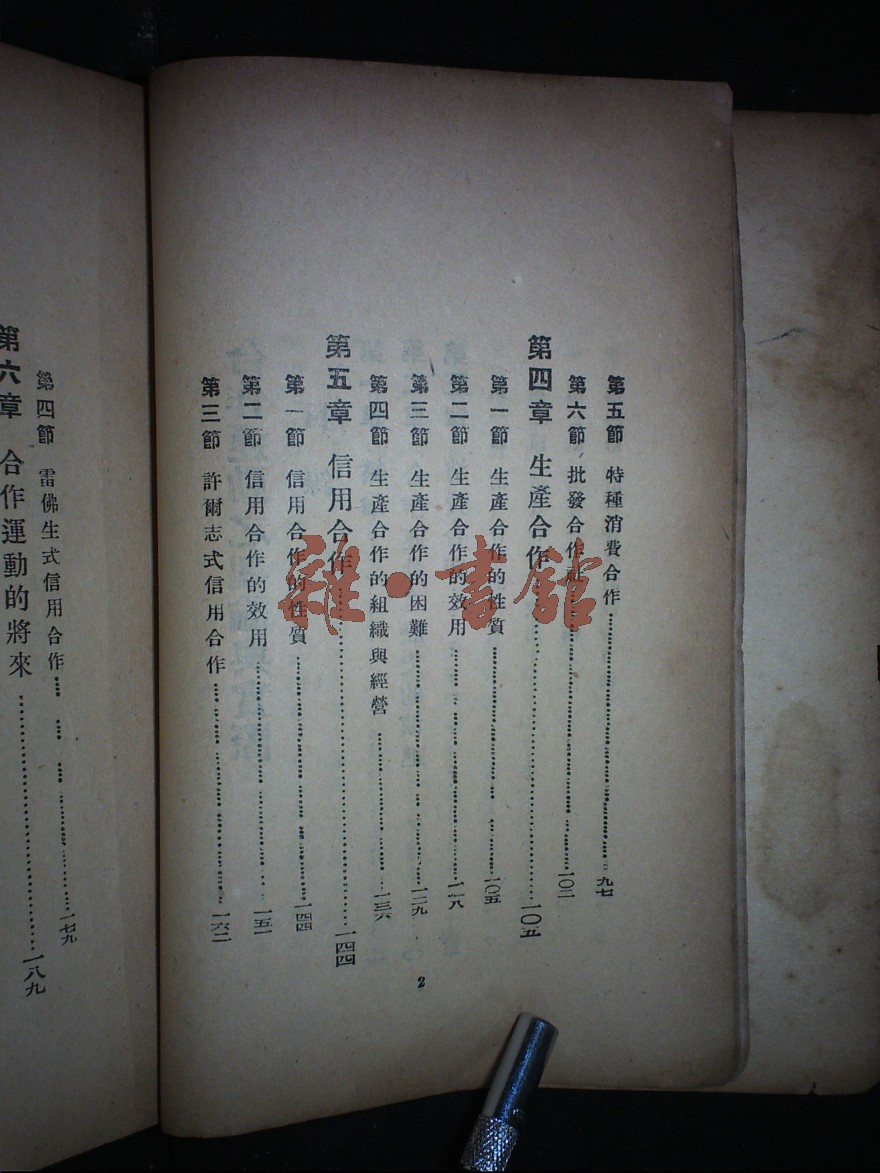 第五節 特種消費合作……九七
第六節 批發合作社……一〇二
第四章 生產合作……一〇五
第一節 生產合作的性質……一〇五
第二節 生產合作的效用……一一八
第三節 生產合作的困難……一二九
第四節 生產合作的組織與經營……一三六
第五章 信用合作……一四四
第一節 信用合作的性質……一四四
第二節 信用合作的效用……一五一
第三節 許爾志式信用合作……一六二
2
第四節 雷佛生式信用合作……一七九
第六章 合作運動的將來……一八九
雜·書館